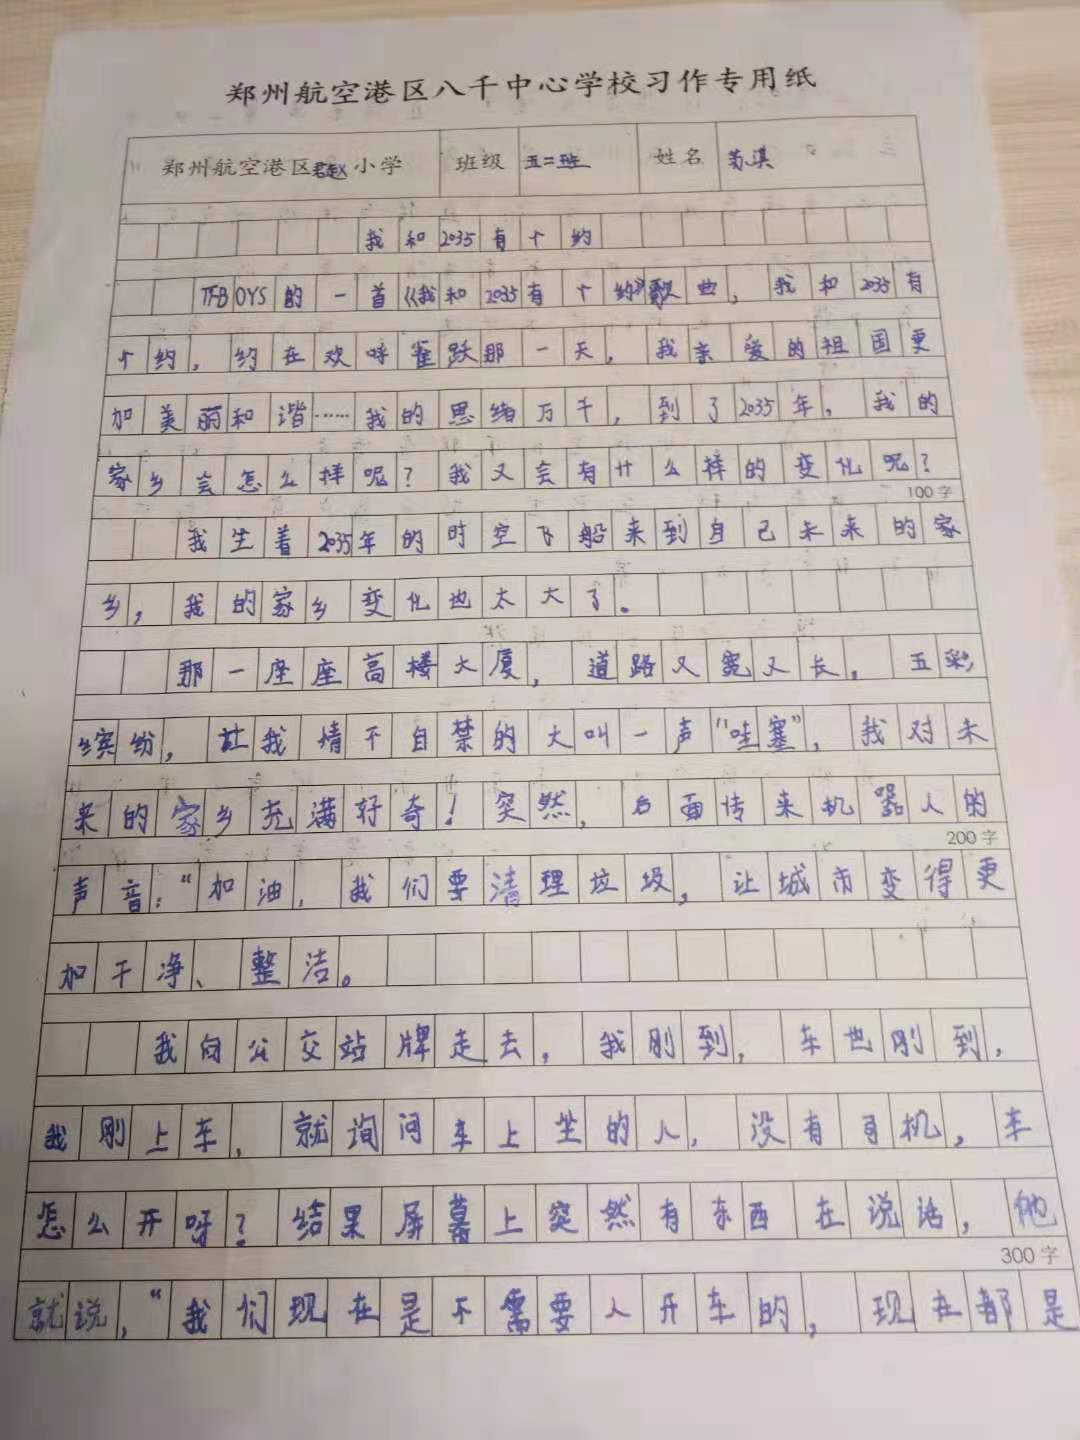 郑州航空港区八千中心学校习作专用纸
郑州航空港区君赵小学 班级 五二班 姓名 苏淇
我和2035有个约
TFBOYS的一首《我和2035有个约》歌曲，我和2035有
个约，约在欢呼雀跃那一天，我亲爱的祖国更
加美丽和谐……我的思绪万千，到了2035年，我的
家乡会怎么样呢？我又会有什么样的变化呢？
100字
我坐着2035年的时空飞船来到自己未来的家
乡，我的家乡变化也太大了。
那一座座高楼大厦，道路又宽又长，五彩
缤纷，让我情不自禁的大叫一声“哇塞”，我对未
来的家乡充满好奇！突然，后面传来机器人的
200字
声音：“加油，我们要清理垃圾，让城市变得更
加干净、整洁。
我向公交站牌走去，我刚到，车也刚到，
我刚上车，就询问车上坐的人，没有司机，车
怎么开呀？结果屏幕上突然有东西在说话，他
300字
就说，“我们现在是不需要人开车的，现在都是